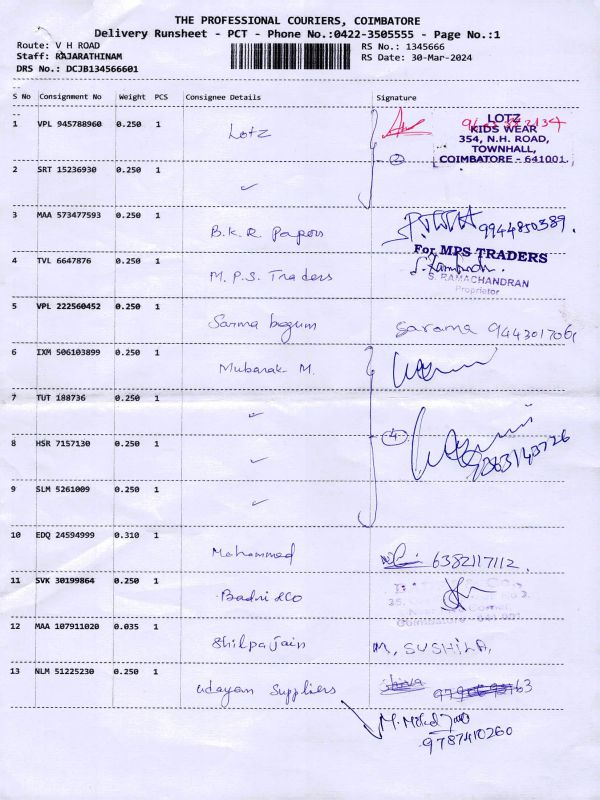 THE PROFESSIONAL COURIERS, COIMBATORE
Delivery Runsheet - PCT - Phone No.:0422-3505555 - Page No.:1
Route: V H ROAD RS No.: 1345666
Staff: RAJARATHINAM RS Date: 30-Mar-2024
DRS No.: DCJB134566601
S No Consignment No Weight PCS Consignee Details Signature
1 VPL 945788960 0.250 1 Lotz
LOTZ
KIDS WEAR
354, N.H. ROAD,
TOWNHALL,
COIMBATORE - 641001.
2
2 SRT 15236930 0.250 1 ✓
3 MAA 573477593 0.250 1 B.K.R Papers 9944850389.
4 TVL 6647876 0.250 1 M.P.S. Traders
For MPS TRADERS
S. RAMACHANDRAN
Proprietor
5 VPL 222560452 0.250 1 Sarma begum Sarama
6 IXM 506103899 0.250 1 Mubarak M.
7 TUT 188736 0.250 1 ✓
4
8 HSR 7157130 0.250 1 ✓
9 SLM 5261009 0.250 1 ✓
10 EDQ 24594999 0.310 1 Mohammed 6382117112.
11 SVK 30199864 0.250 1 Badri &CO
12 MAA 107911020 0.035 1 Shilpa jain M. SUSHILA.
13 NLM 51225230 0.250 1 Udayam Suppliers
9787410260